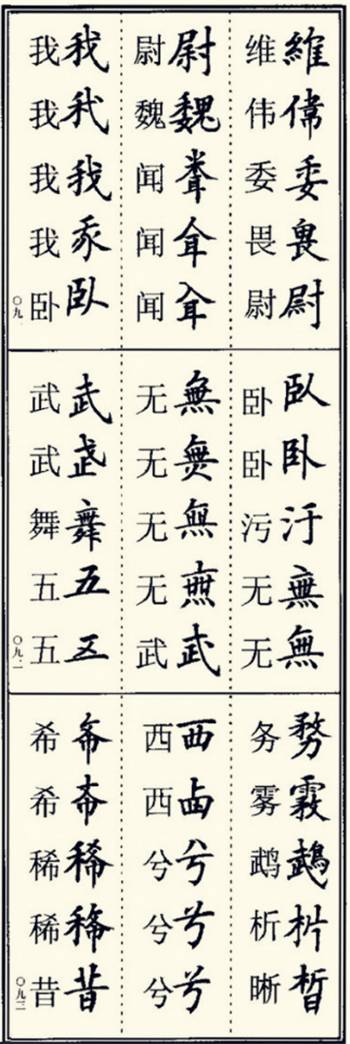 維偉委畏尉
维伟委畏尉
尉魏
尉魏闻闻闻
我我我臥
我我我我卧
〇九
臥卧汙無無
卧卧污无无
無無無無武
无无无无武
武武舞五五
武武舞五五
〇九二
務霧鵡析晳
务雾鹉析晰
西西兮兮兮
西西兮兮兮
希希稀稀昔
希希稀稀昔
〇九三